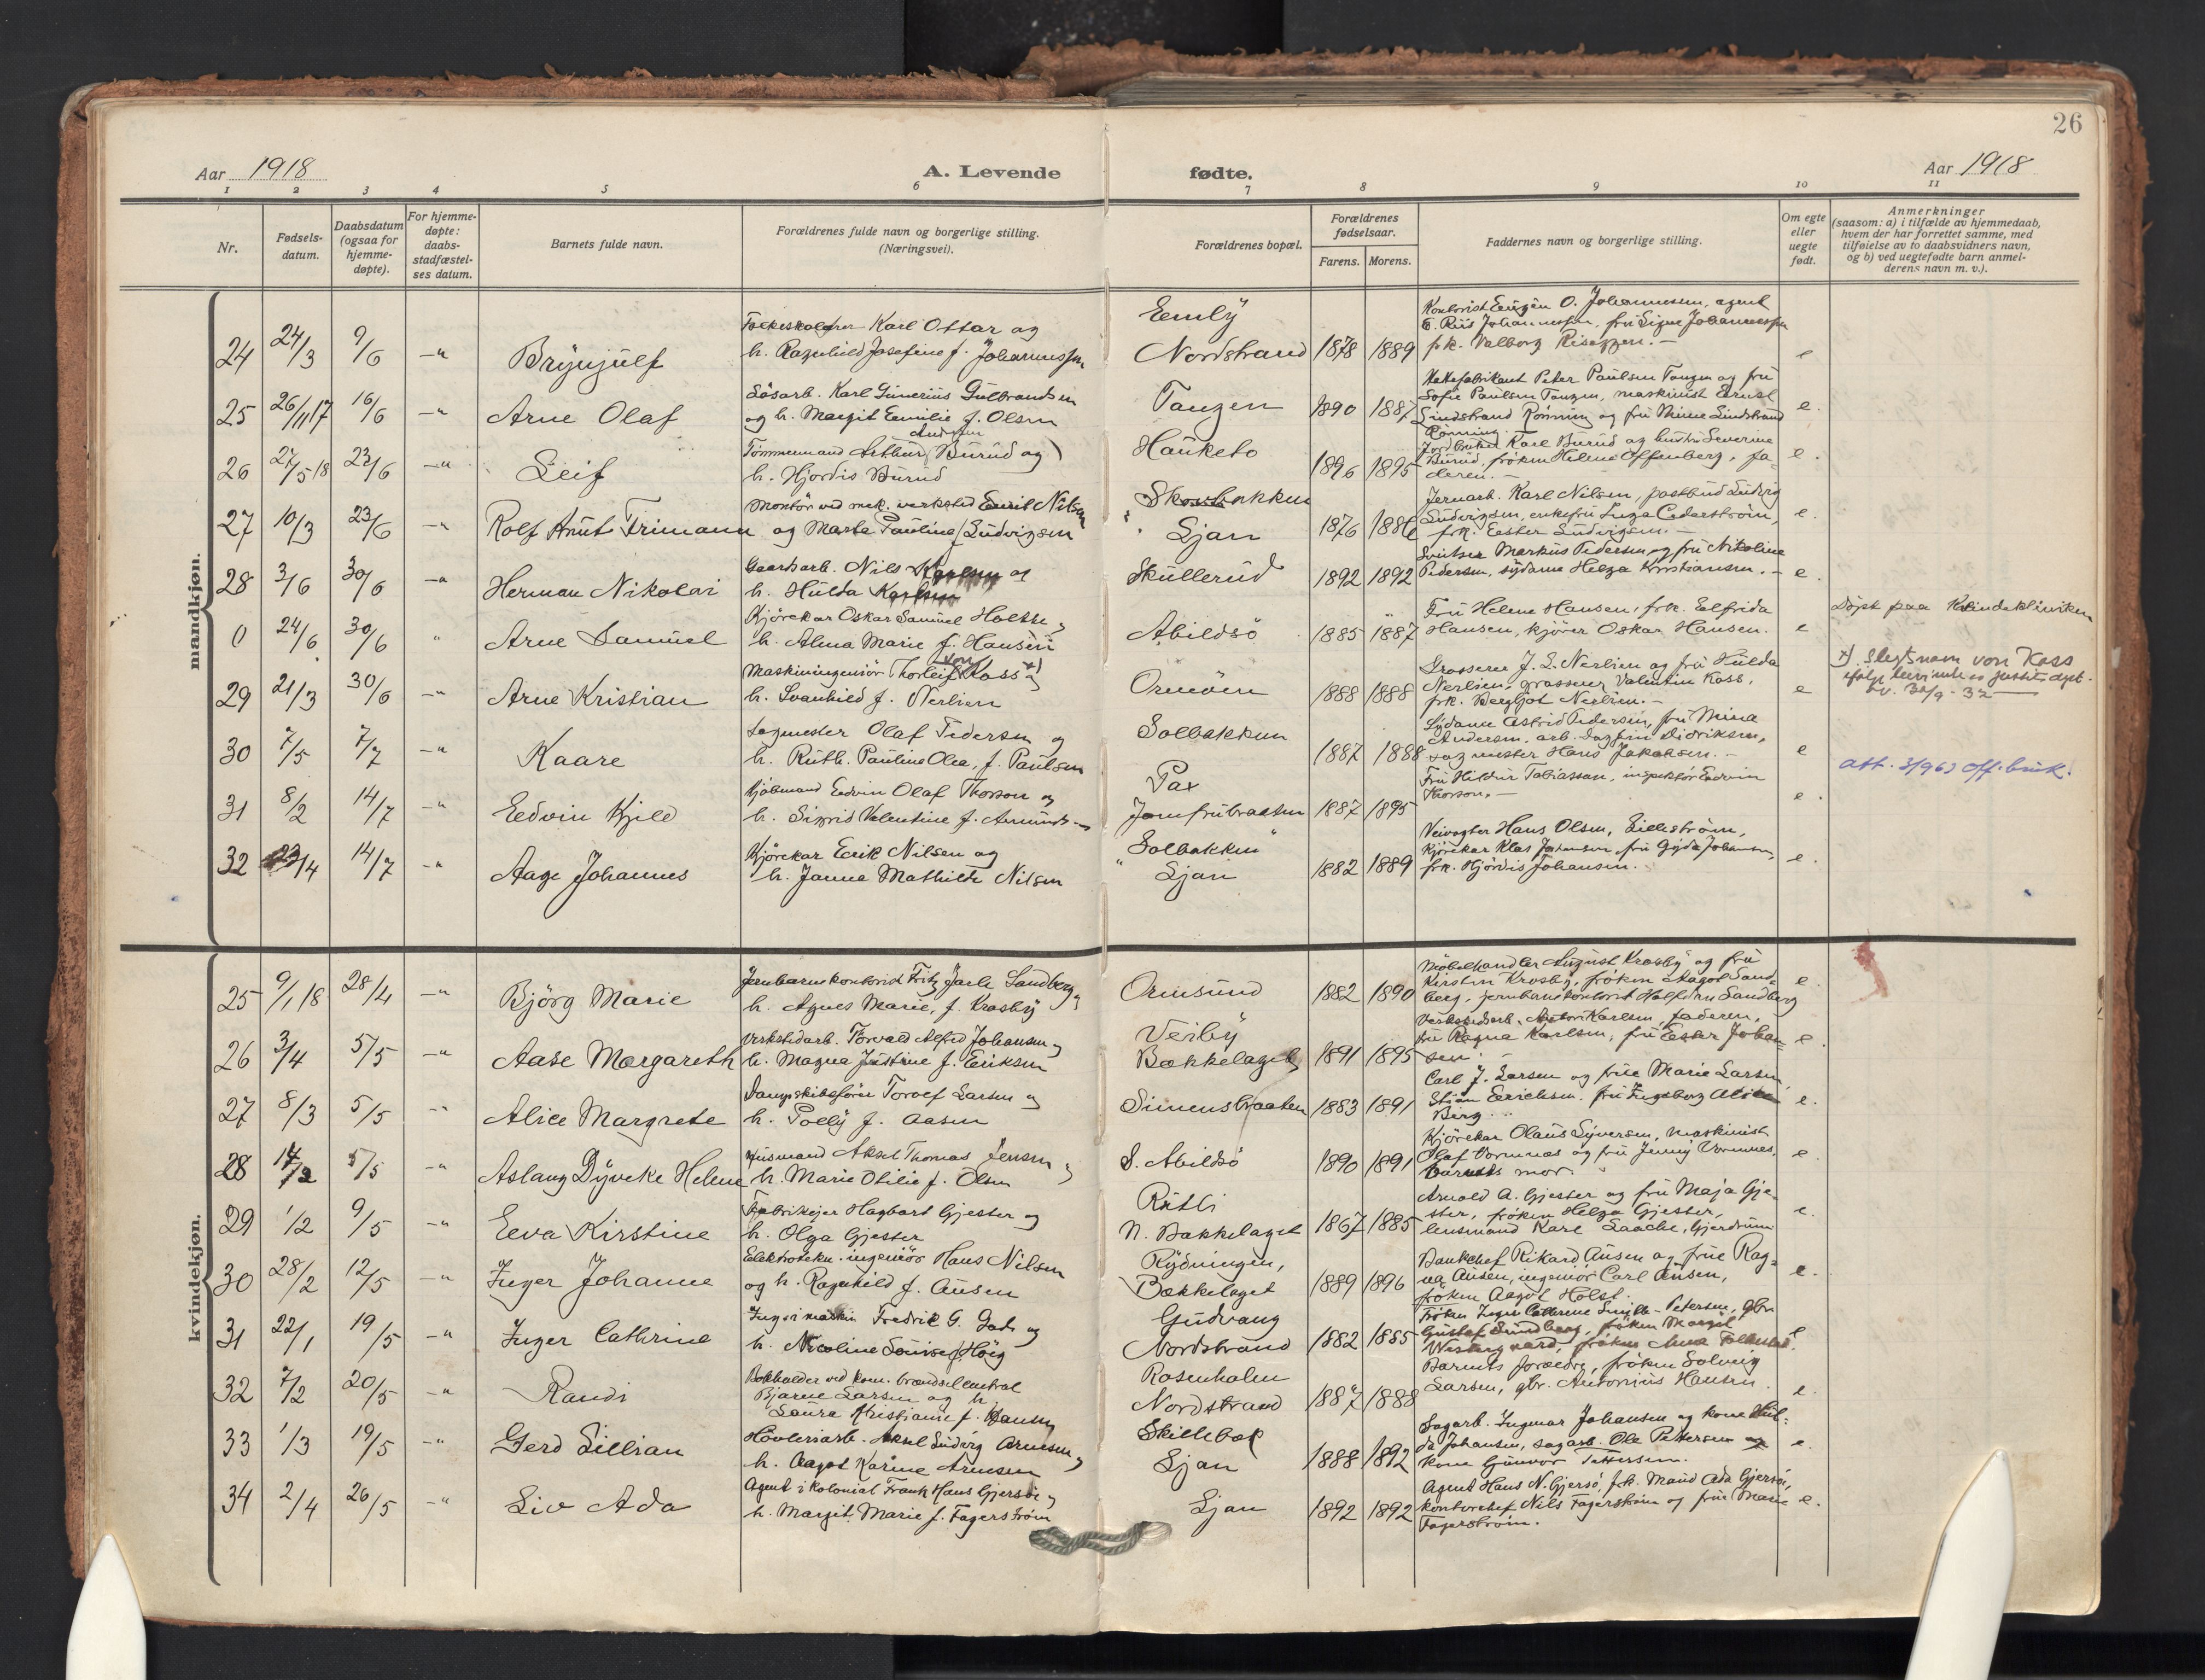 26
Aar 1918
A. Levende fødte.
Aar 1918
1 2 3 4 5 6 7 8 9 10 11
Nr.
Fødsels-
datum.
Daabsdatum
(ogsaa for
hjemme-
døpte).
For hjemme-
døpte:
daabs-
stadfæstel-
ses datum.
Barnets fulde navn.
Forældrenes fulde navn og borgerlige stilling.
(Næringsvei).
Forældrenes bopæl.
Forældrenes
fødselsaar.
Farens. Morens.
Faddernes navn og borgerlige stilling.
Om egte
eller
uegte
født.
Anmerkninger
(saasom: a) i tilfælde av hjemmedaab,
hvem der har forrettet samme, med
tilføielse av to daabsvidners navn,
og b) ved uegtefødte barn anmel-
derens navn m. v.).
mandkjøn.
24 24/3 9/6 -"- Brynjulf
Karl Ottar og
h. Ragnhild Josefine f. Johannessen
Emly
Nordstrand 1878 1889
Kontorist Eugen O. Johannessen, agent
E. Riis Johannessen, fru Signe Johannessen
frk. Valborg
e
25 26/11 17 16/6 -"- Arne Olaf
Karl Gunerius Gulbrandsen
og h. Margit Emilie f. Olsen
Tangen 1890 1887
Peter Paulsen Tangen og fru
Sofie Paulsen Tangen, maskinist Ernst
Lindstrand Rønning og fru Minne Lindstrand
Rønning.
e.
26 27/5 18 23/6 -"- Leif
Andersen
Tømmermand Arthur Burud og
h. Hjordis Burud
Hauketo 1896 1895
Jordbruker Karl Burud og hustru Severine
Burud, frøken Helene Offenberg, fa-
deren. -
e.
27 10/3 23/6 -"- Rolf Knut Trimann
Montør ved mek. verksted Enrit Nilsen
og Marta Pauline f. Ludvigsen
Skovbakken
Ljan 1876 1886
Jernarb. Karl Nilsen, postbud Ludvig
Ludvigsen, enkefru Inga Cederstrøm,
frk. Ester Ludvigsen. -
e.
28 3/6 30/6 -"- Herman Nikolai
Gaardsarb. Nils Karlsen og
h. Hulda Karlsen
Skullerud 1892 1892
Markus Pedersen og fru Nikoline
Pedersen, sydame Helga Kristiansen. -
e.
0 24/6 30/6 " Arne Samuel
Kjørekar Oskar Samuel Holthe og
h. Alma Marie f. Hansen
Abildsø 1885 1887
Fru Helene Hansen, frk. Elfrida
Hansen, kjører Oskar Hansen.
e
Døpt paa Kvindeklinikken
29 21/3 30/6 -"- Arne Kristian
Maskiningeniør Thorleif von Koss x) og
h. Svanhild f. Nerlien
Ormøen 1888 1888
Grosserer J. L. Nerlien og fru Hulda
Nerlien, grosserer Valentin Koss,
frk. Bergljot Nerlien. -
e
x). Slegtsnavn von Koss
ifølge bevilling
av 30/9 - 32
30 7/5 7/7 -"- Kaare
Sagmester Olaf Pedersen og
h. Ruth Pauline Olea, f. Paulsen
Solbakken 1887 1888
Sydame Astrid Pedersen, fru Mina
Andersen, arb. Dagfin Didriksen,
sagmester Hans Jakobsen. -
e
31 8/2 14/7 -"- Edvin Kjeld
Edvin Olaf Thorson og
h. Sigrid Valentine f. Amundsen
Pax
Jomfrubraaten 1887 1895
Fru Hildur Tobiassen, inspektør Edvin
Thorson. -
e.
att. 3/963 off. bruk.
32 23/4 14/7 -"- Aage Johannes
Kjørekar Erik Nilsen og
h. Janna Mathilde Nilsen
Solbakken
Ljan 1882 1889
Veivogter Hans Olsen, Lillestrøm,
Kjørekar Klas Johansen, fru Gyda Johansen,
frk. Hjørdis Johansen.
e.
kvindekjøn.
25 9/1 18 28/4 -"- Bjørg Marie
Jernbanekontorist Fritz Jarle Sandberg og
h. Agnes Marie, f. Krosby
Ormsund 1882 1890
Møbelhandler August Krosby og fru
Kirsten Krosby, frøken Aagot Sand-
berg, jernbanekontorist Halfdan Sandberg
e.
26 3/4 5/5 -"- Aase Margareth
Verkstedarb. Torvald Alfred Johansen og
h. Magna Justine f. Eriksen
Veiby
Bækkelaget 1891 1895
Verkstedarb. Anton Karlsen, faderen,
fru Ragna Karlsen, fru Ester Johan-
sen. -
e.
27 8/3 5/5 -"- Alice Margrete
Dampskibsfører Torolf Larsen og
h. Polly f. Aasen
Simensbraaten 1883 1891
Carl J. Larsen og frue Marie Larsen,
Stian Erichsen, fru Ingeborg Alice
Berg.
e.
28 14/2 5/5 -"- Aslaug Dyveke Helene
Husmand Aksel Thomas Jensen og
h. Marie Otilie f. Olsen
S. Abildsø 1890 1891
Kjørekar Olaus Syversen, maskinist
Olaf Vormnes og fru Jenny Vormnes,
barnets mor.
e.
29 1/2 9/5 -"- Eva Kirstine
Fabrikejer Hagbart Gjester og
h. Olga Gjester
Rütli
N. Bækkelaget 1867 1885
Arnold A. Gjester og fru Maja Gje-
ster, frøken Helga Gjester,
lensmand Karl Laache, Gjerdrum
e.
30 28/2 12/5 -"- Inger Johanne
Elektrotekn. ingeniør Hans Nilsen
og h. Ragnhild f. Ausen
Rydningen,
Bækkelaget 1889 1896
Bankchef Rikard Ausen og frue Rag-
na Ausen, ingeniør Carl Ausen,
frøken Aagot Holst.
e.
31 22/1 19/5 -"- Inger Cathrine
Ing. i maskin Fredrik G. Gade og
h. Nicoline Louise f. Høeg
Gudvang
Nordstrand 1882 1885
Frøken Inger Cathrine Smith-Petersen, gbr.
Gustaf Sundberg, frøken Margit
Westergaard, frøken Anna Folkestad.
e
32 7/2 20/5 -"- Randi
Bokholder ved kom. brændselcentral
Bjarne Larsen og h.
Laura Kristiane f. Hansen
Rosenholm
Nordstrand 1887 1888
Barnets forældre, frøken Solveig
Larsen, gbr. Antonius Hansen.
e.
33 1/3 19/5 -"- Gerd Lillian
Høvleriarb. Aksel Ludvig Arnesen og
h. Aagot Karine Arnesen
Skillebæk
Ljan 1888 1892
Sagarb. Ingmar Johansen og kone Hul-
da Johansen, sagarb. Ole Pettersen og
kone Gunvor Pettersen.
e.
34 2/4 26/5 -"- Liv Ada
Agent i kolonial Frank Hans Gjersøe og
h. Margit Marie f. Fagerstrøm
Ljan 1892 1892
Agent Hans N. Gjersø, frk. Maud Ada Gjersøe,
kontorchef Nils Fagerstrøm og frue Marie
Fagerstrøm.
e.